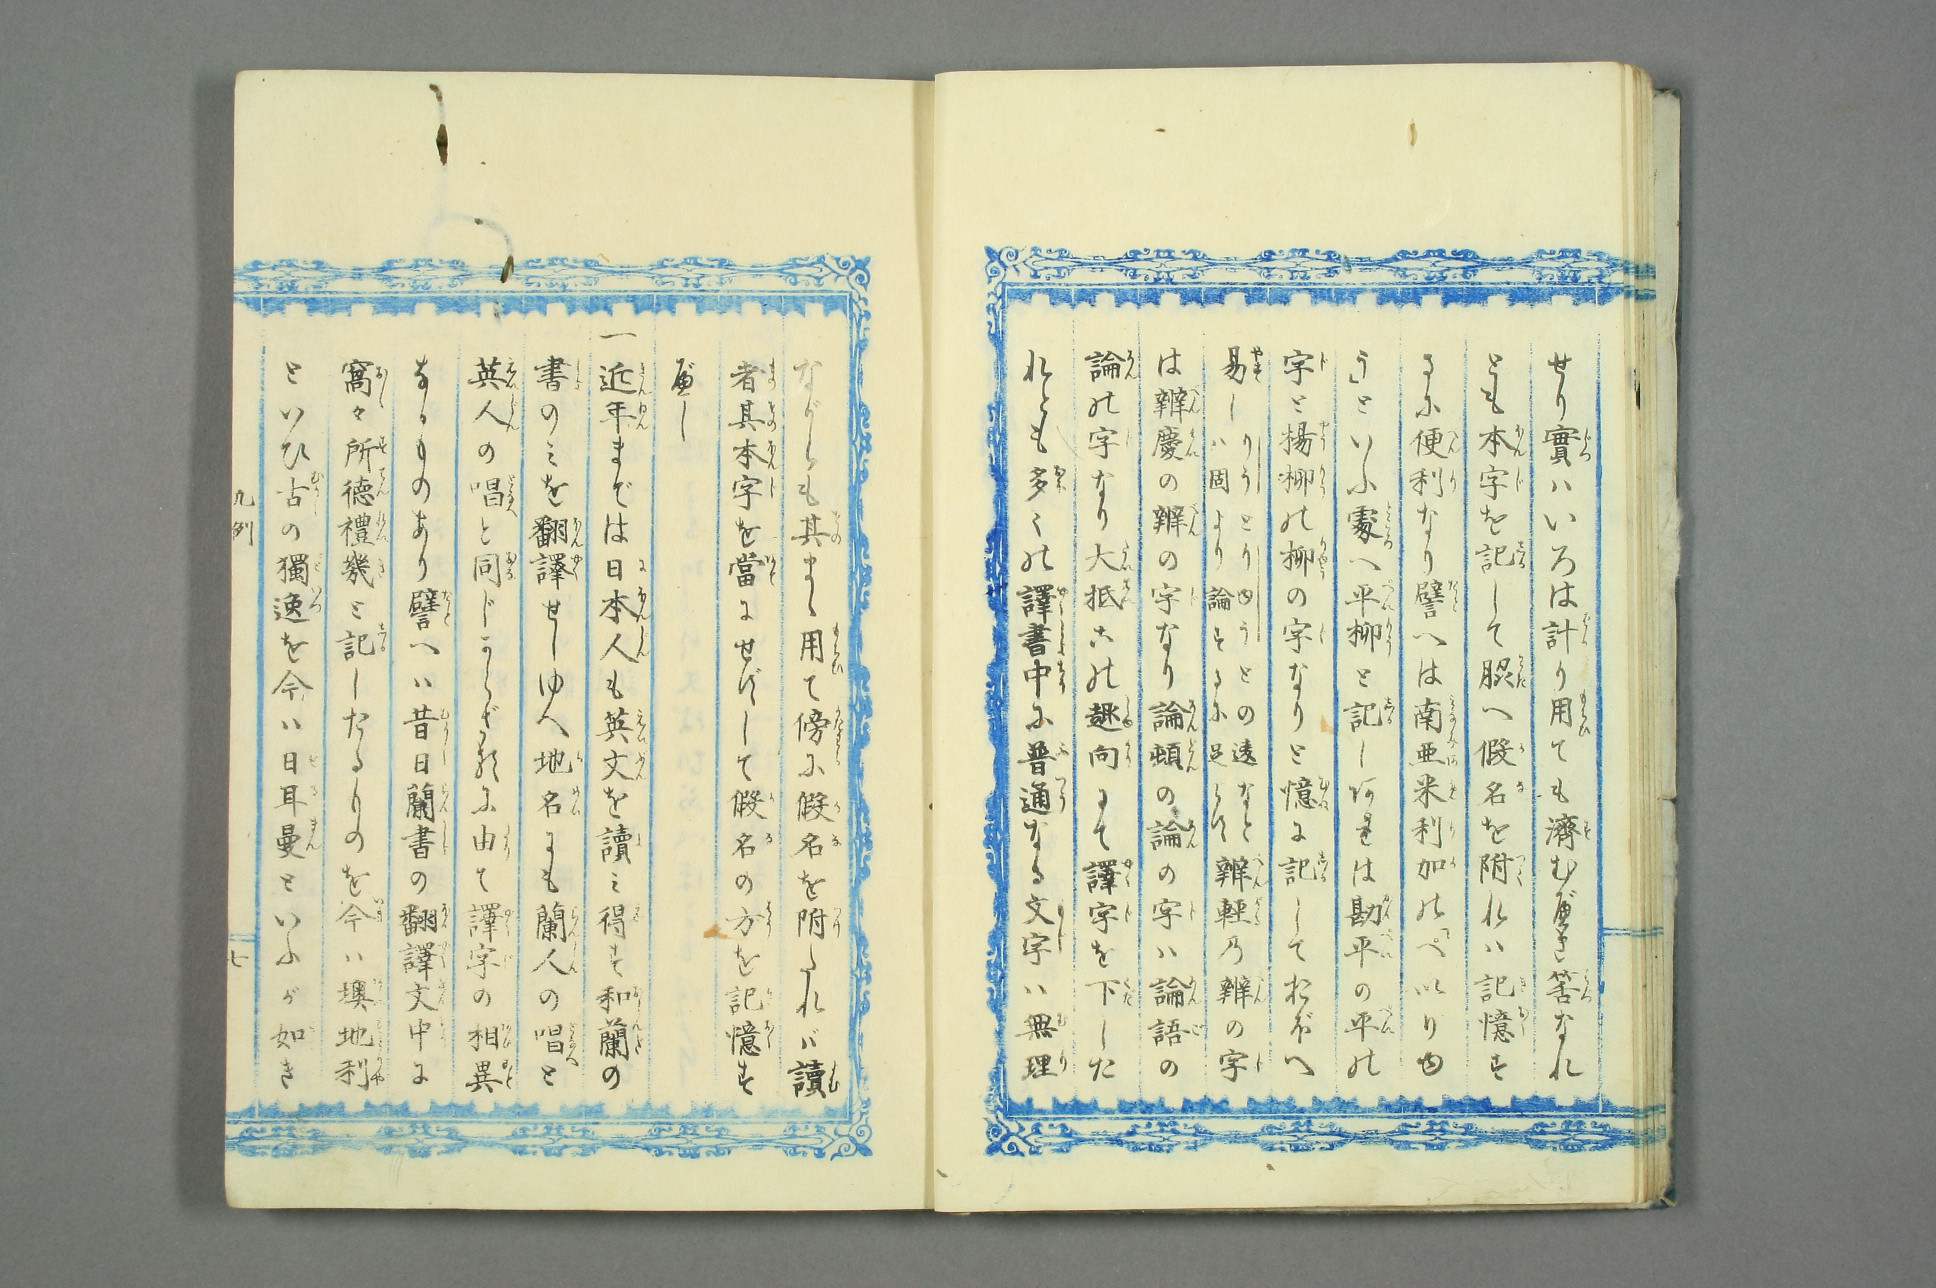 せり實ハいろは計り用ても濟むべき筈なれ
ども本字を記して脇へ假名を附れハ記憶す
るに便利なり譬へは南亜米利加のぺいりゆ
うといふ處へ平柳と記し何れは勘平の平の
字と楊柳の柳の字なりと憶に記しておぼへ
易しりうとりゆうとの遠なとハ固より論するに足らす辨輕乃辨の字
は辨慶の辨の字なり論頓の論の字ハ論語の
論の字なり大抵この趣向にて譯字を下した
れども多くの譯書中に普通なる文字ハ無理
ながらも其まゝ用て傍に假名を附たれバ讀
者其本字を當にせずして假名の方を記憶す
べし
一近年までは日本人も英文を讀み得す和蘭の
書のみを翻譯せしゆへ地名にも蘭人の唱と
英人の唱と同じからざるに由て譯字の相異
なるものあり譬へハ昔日蘭書の翻譯文中に
窩々所徳禮幾と記したるものを今ハ墺地利
といひ古の獨逸を今ハ日耳曼といふが如き
凡例
七